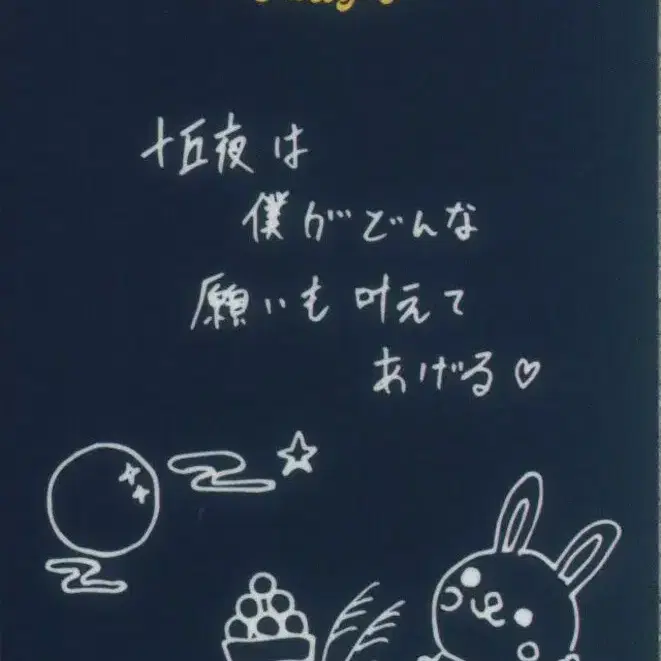 十五夜は
僕がどんな
願いも叶えて
あげる♡